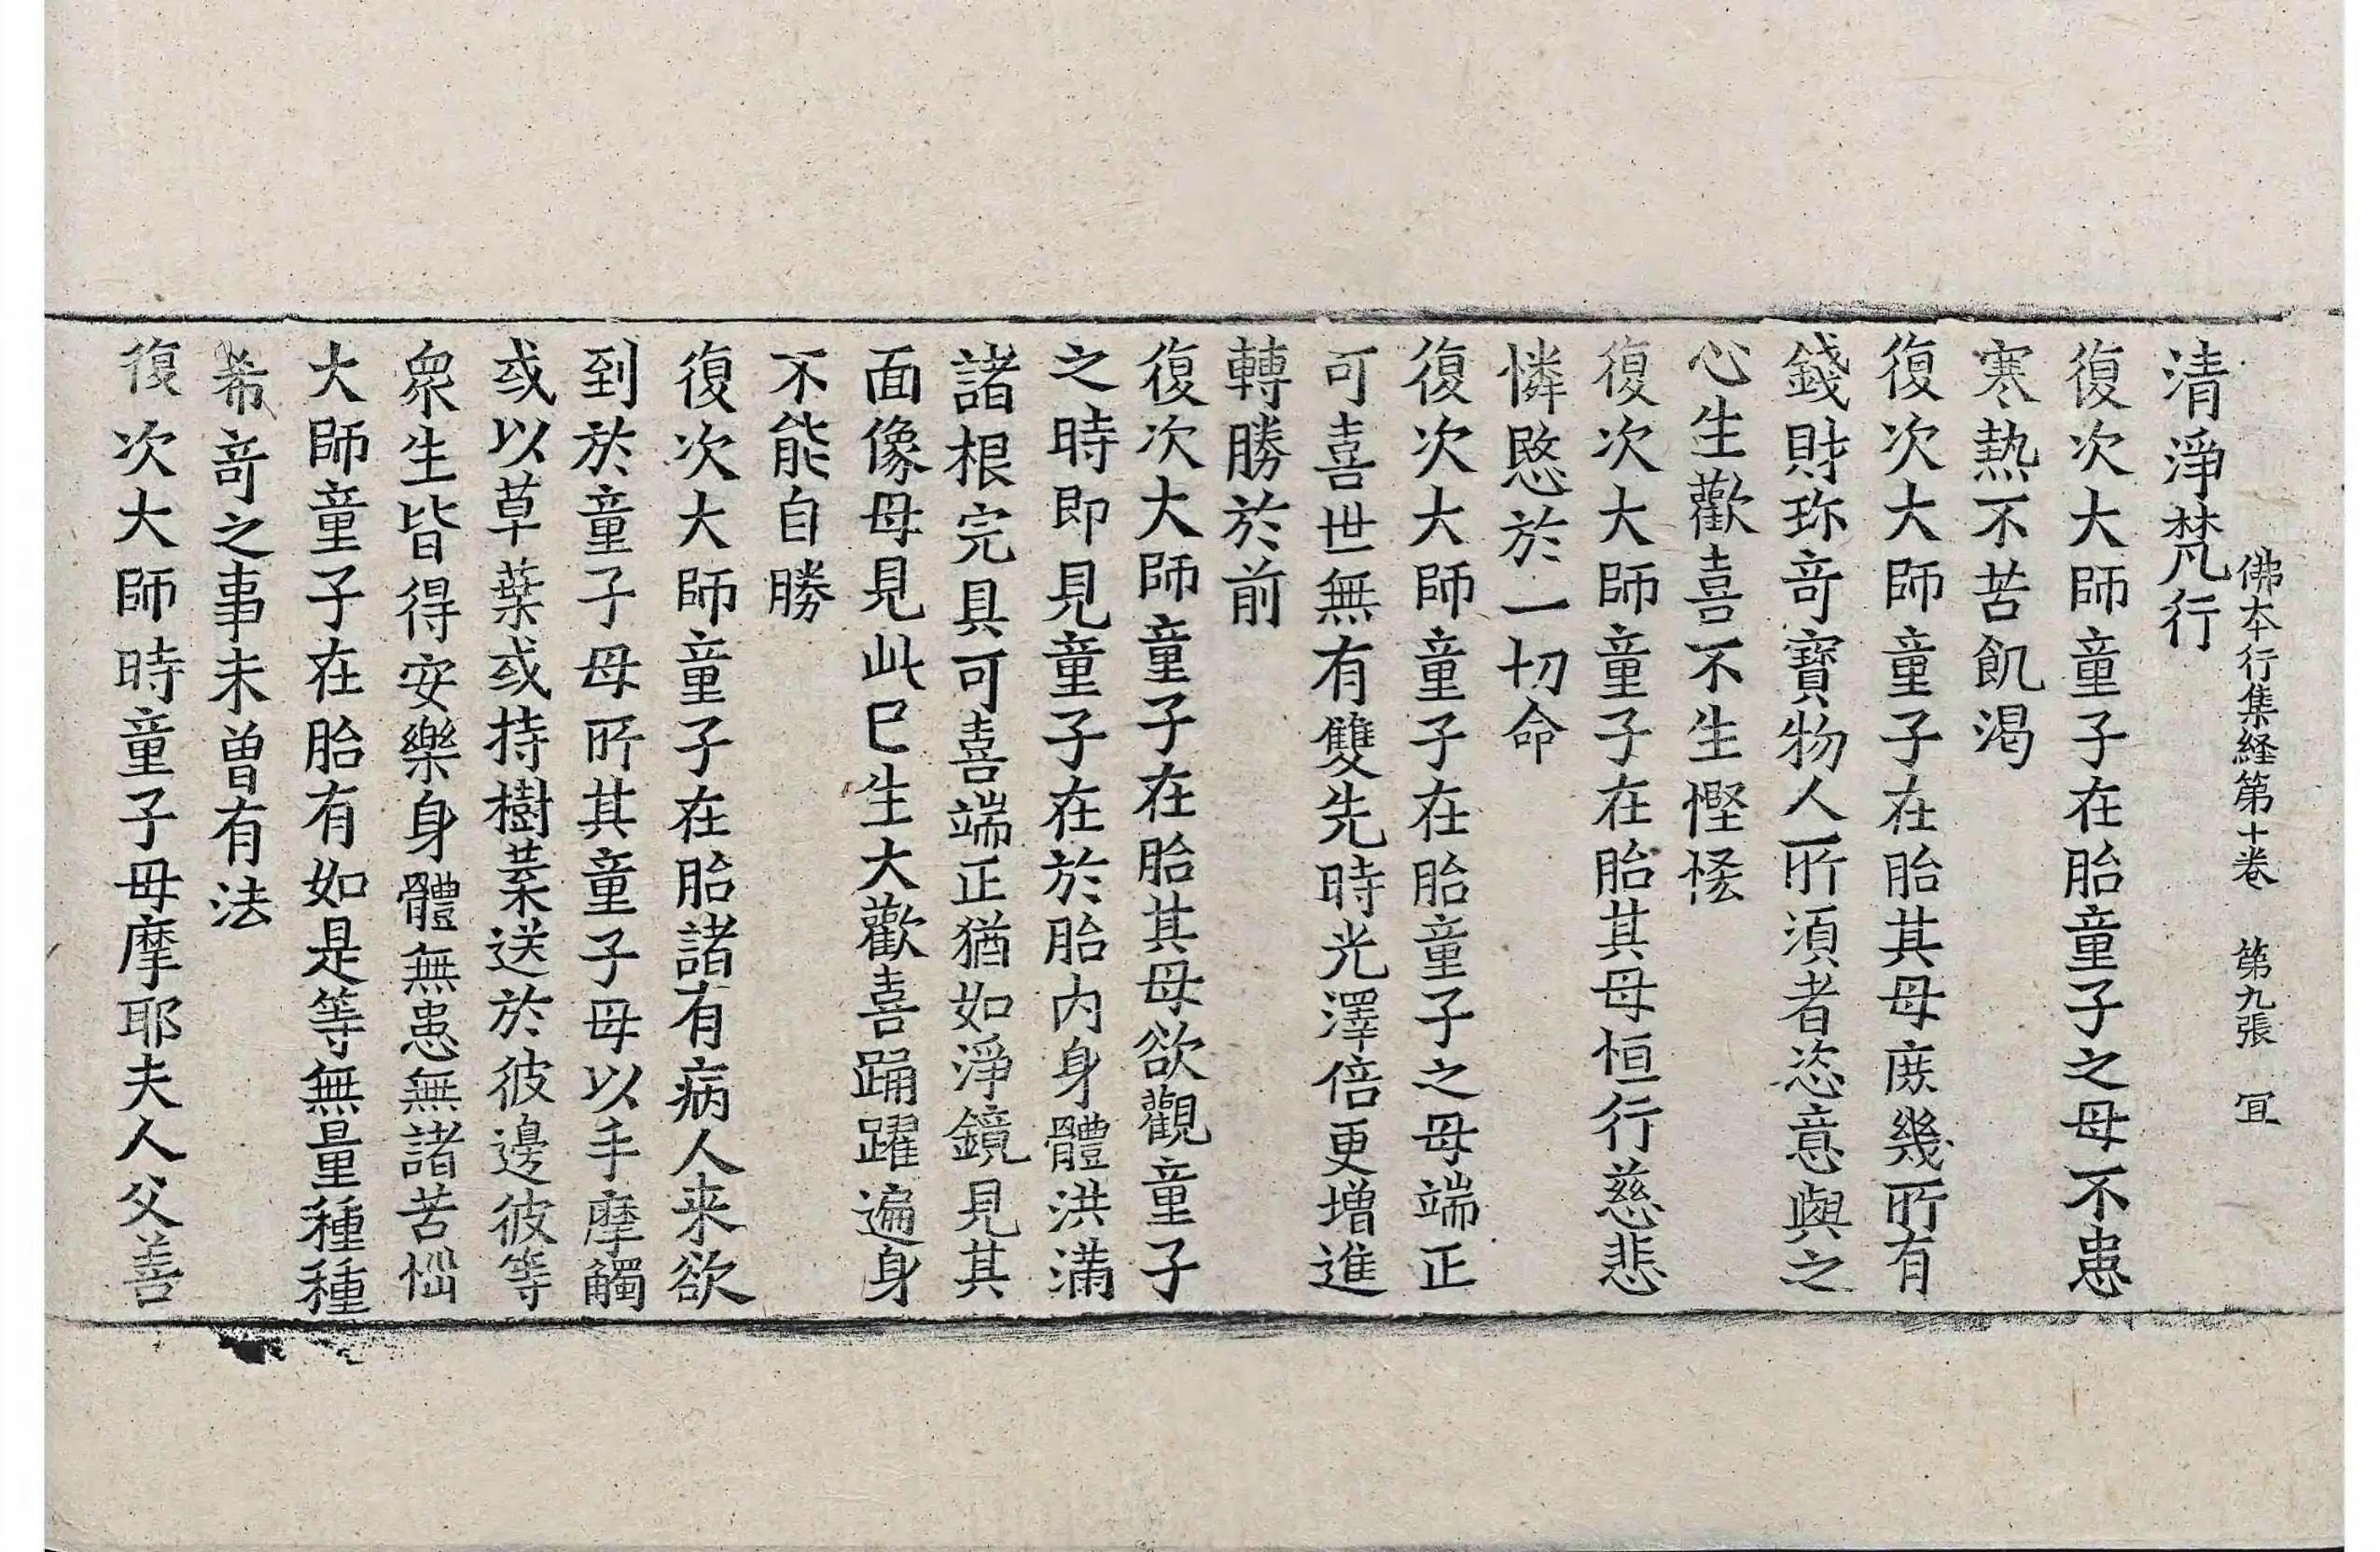 佛本行集経第十卷 第九張 冝
清淨梵行
復次大師童子在胎童子之母不患
寒熱不苦飢渴
復次大師童子在胎其母庻幾所有
錢財珎竒寶物人所湏者恣意與之
心生歡喜不生慳悋
復次大師童子在胎其母恒行慈悲
憐愍於一切命
復次大師童子在胎童子之母端正
可喜世無有雙先時光澤倍更增進
轉勝於前
復次大師童子在胎其母欲觀童子
之時即見童子在於胎内身體洪滿
諸根完具可喜端正猶如淨鏡見其
面像母見此已生大歡喜踊躍遍身
不能自勝
復次大師童子在胎諸有病人来欲
到於童子母所其童子母以手摩觸
或以草葉或持樹葉送於彼邊彼等
衆生皆得安樂身體無患無諸苦惱
大師童子在胎有如是等無量種種
希竒之事未曾有法
復次大師時童子母摩耶夫人父善